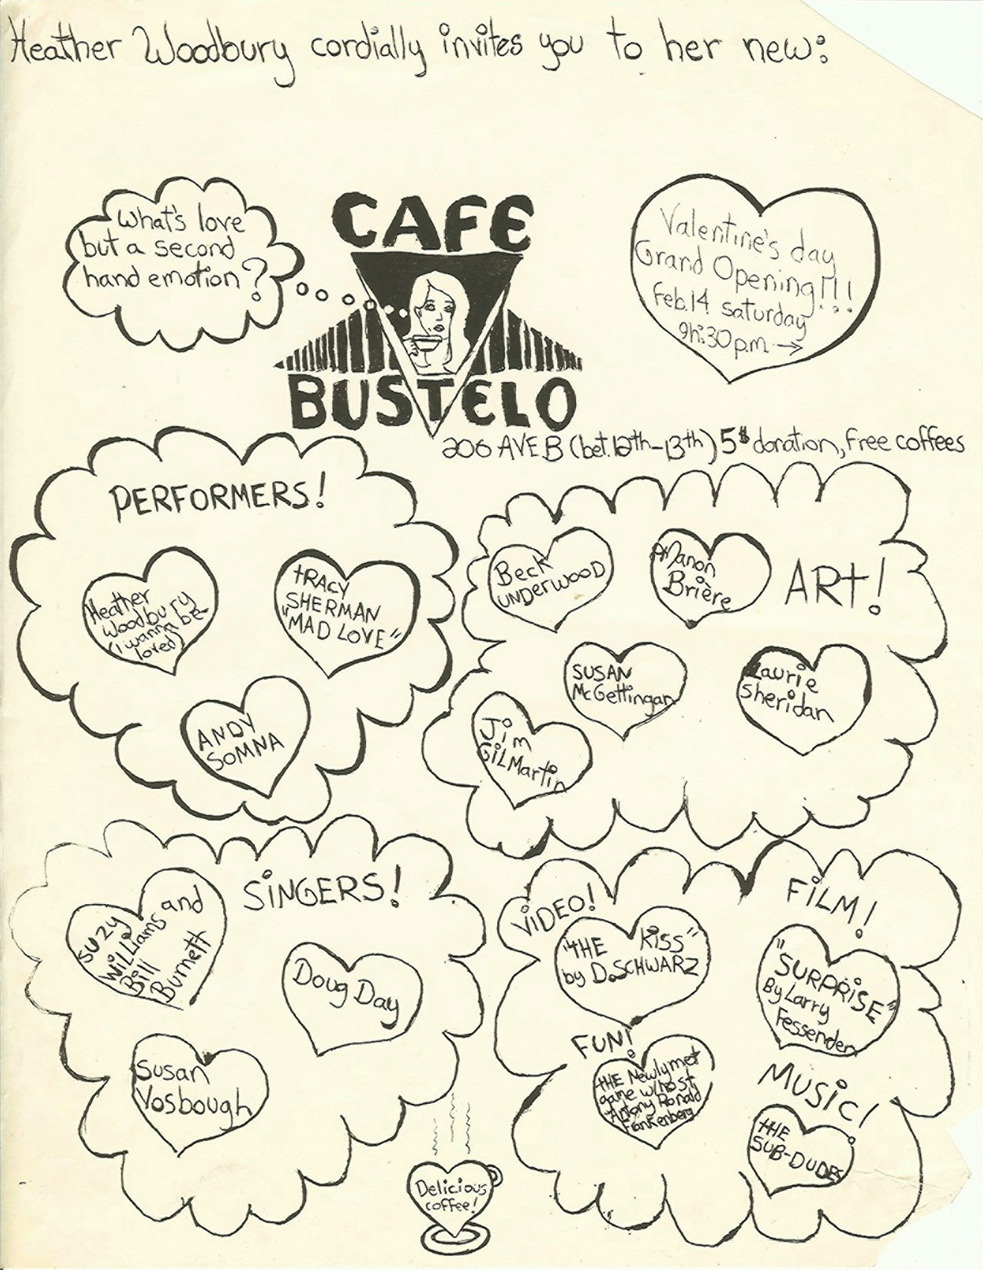 Heather Woodbury cordially invites you to her new:
What's love
but a second
hand emotion?
CAFE
BUSTELO
Valentine's day
Grand Opening!!!
Feb.14 saturday
9h:30p.m →
206 AVE B (bet. 12th-13th) 5$ donation, free coffees
PERFORMERS!
Heather
Woodbury
(I wanna be
loved)
tRACY
SHERMAN
"MAD LOVE"
ANDY
SOMNA
ART!
Beck
UNDERWOOD
Manon
Brière
SUSAN
McGettingan
Laurie
Sheridan
Jim
GiLMartin
SINGERS!
SUZY
WiLLiams and
Bill
Burnett
Doug Day
Susan
Vosbough
ViDEO!
"THE KiSS"
by D.SCHWARZ
FiLM!
"SURPRiSE"
By Larry
Fessenden
FUN!
tHE Newlymet
game w/host
Antony Ronald
Frankenberg
MUSiC!
tHE
SUB-DUDES
Delicious
coffee!